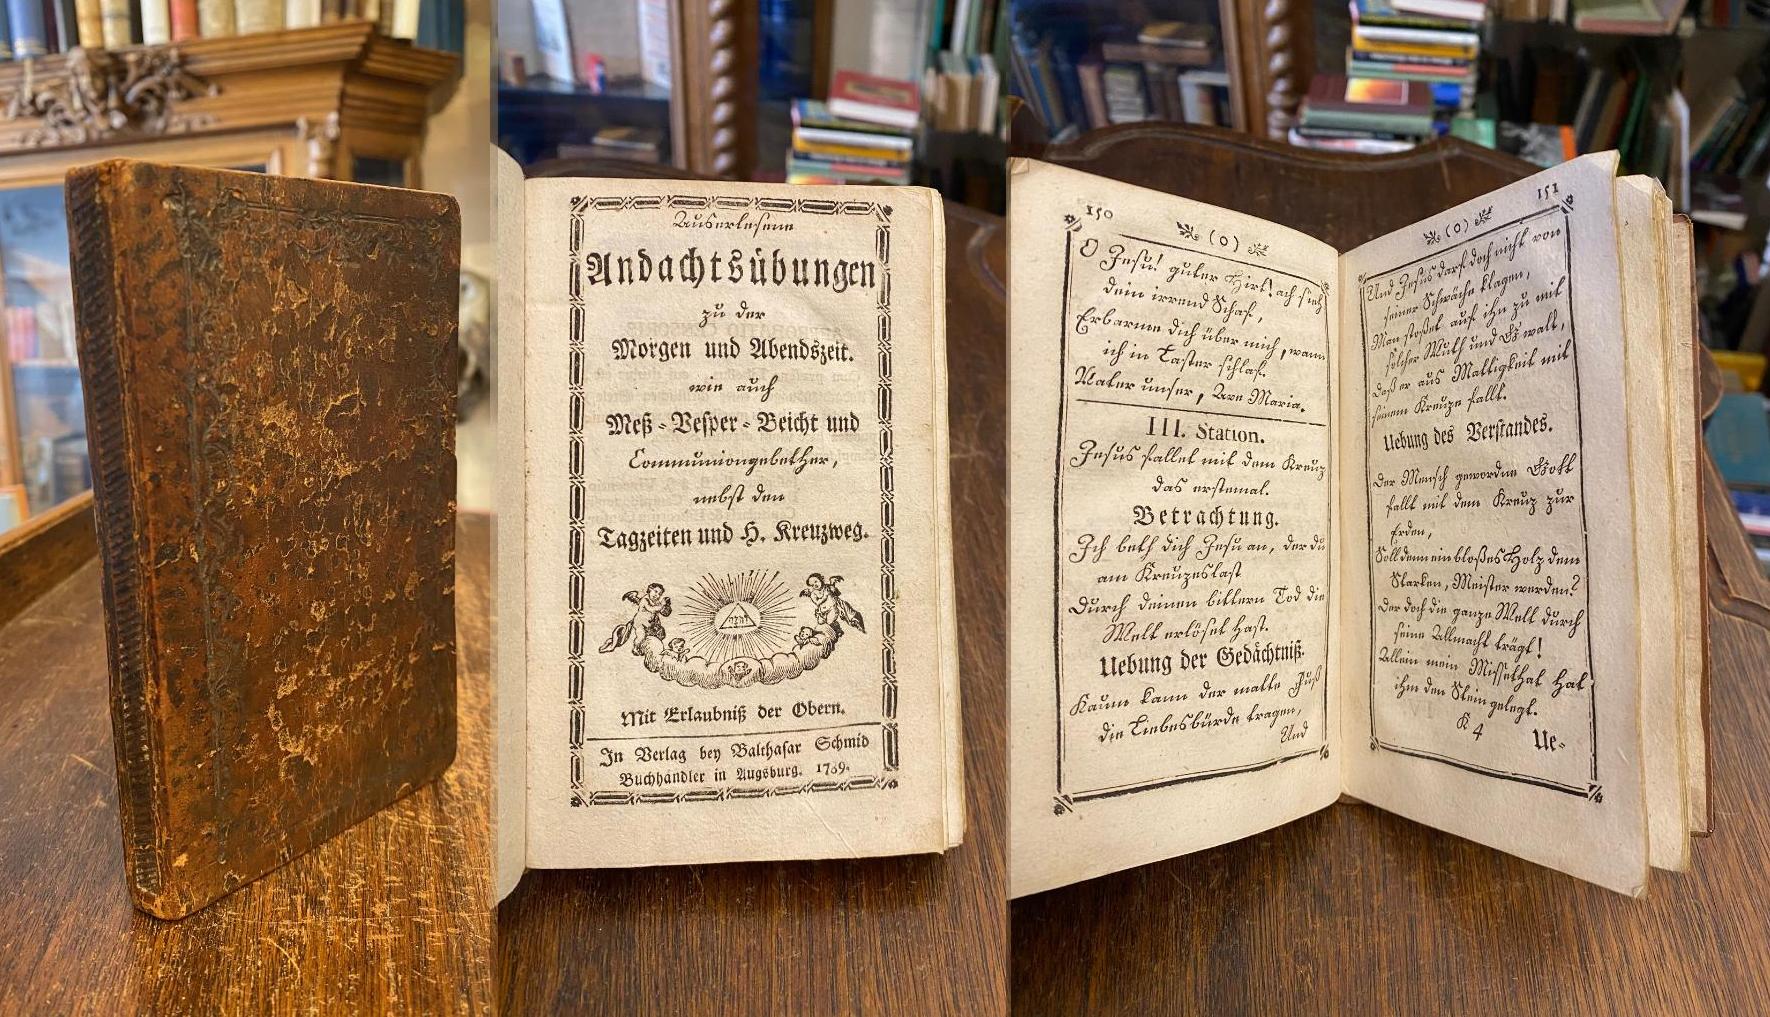 Auserlesene
Andachtsübungen
zu der
Morgen und Abendszeit.
wie auch
Meß-Vesper-Beicht und
Communiongebether,
nebst den
Tagzeiten und H. Kreuzweg.
Mit Erlaubniß der Obern.
In Verlag bey Balthasar Schmid
Buchhändler in Augsburg. 1769.
150
(o)
O Jesu! guter Hirt! ach sieh
dein irrend Schaf,
Erbarme dich über mich, wann
ich in Laster schlaf.
Vater unser, Ave Maria.
III. Station.
Jesus fallet mit dem Kreuz
das erstemal.
Betrachtung.
Ich beth dich Jesu an, der du
am Kreuzeslast
Durch deinen bittern Tod die
Welt erlöset hast.
Uebung der Gedächtniß.
Kaum kann der matte Fuß
die Liebesbürde tragen,
Und
151
(o)
Und Jesus darf doch nicht von
seiner Schwäche klagen,
Man stoßet auf ihn zu mit
solcher Wuth und Gewalt,
Daß er aus Mattigkeit mit
seinem Kreuze fallt.
Uebung des Verstandes.
Der Mensch gewordne Gott
fallt mit dem Kreuz zur
Erden,
Soll denn ein bloßes Holz dem
Starken, Meister werden?
Der doch die ganze Welt durch
seine Allmacht trägt!
Allein mein Missethat hat
ihm den Stein gelegt.
K 4
Ue-